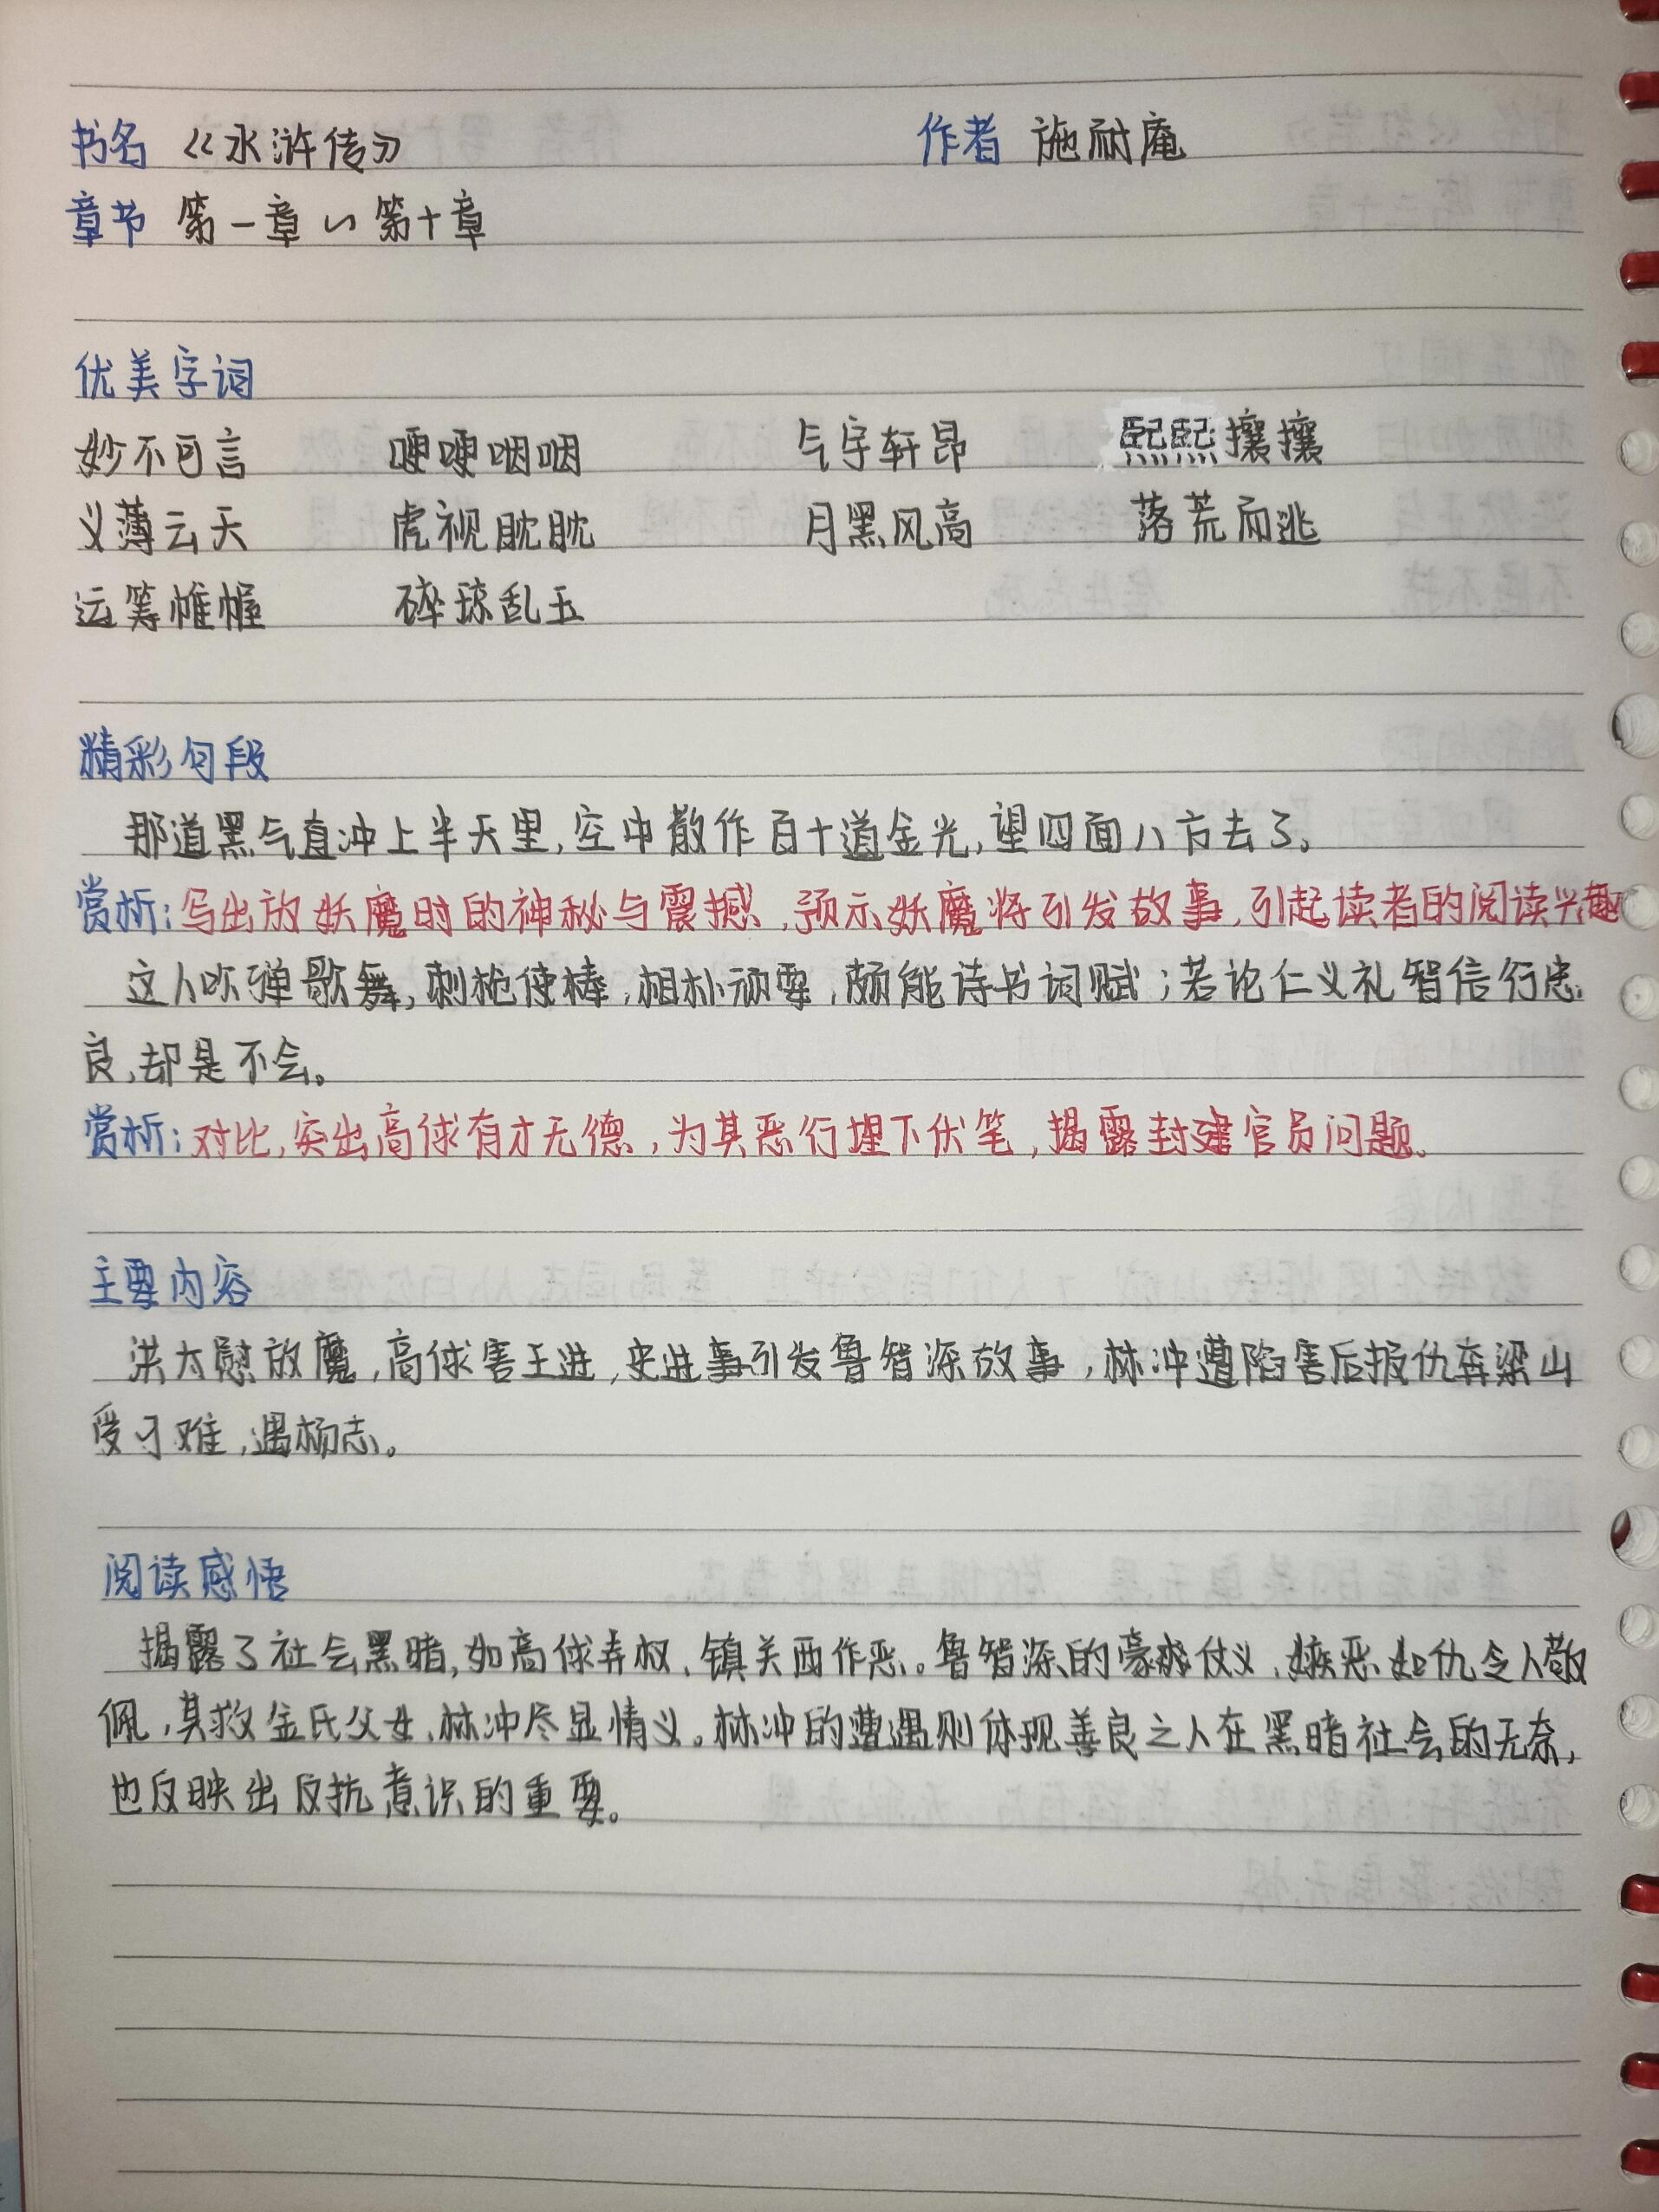 书名 《水浒传》 作者 施耐庵
章节 第一章~第十章
优美字词
妙不可言 哽哽咽咽 气宇轩昂 熙熙攘攘
义薄云天 虎视眈眈 月黑风高 落荒而逃
运筹帷幄 碎琼乱玉
精彩句段
那道黑气直冲上半天里,空中散作百十道金光,望四面八方去了。
赏析:写出放妖魔时的神秘与震撼,预示妖魔将引发故事,引起读者的阅读兴趣
这人吹弹歌舞,刺枪使棒,相扑顽耍,颇能诗书词赋;若论仁义礼智信行忠
良,却是不会。
赏析:对比,突出高俅有才无德,为其恶行埋下伏笔,揭露封建官员问题。
主要内容
洪太尉放魔,高俅害王进,史进事引发鲁智深故事,林冲遭陷害后报仇奔梁山
受刁难,遇杨志。
阅读感悟
揭露了社会黑暗,如高俅弄权、镇关西作恶。鲁智深的豪爽仗义、嫉恶如仇令人敬
佩,其救金氏父女、林冲尽显情义。林冲的遭遇则体现善良之人在黑暗社会的无奈,
也反映出反抗意识的重要。